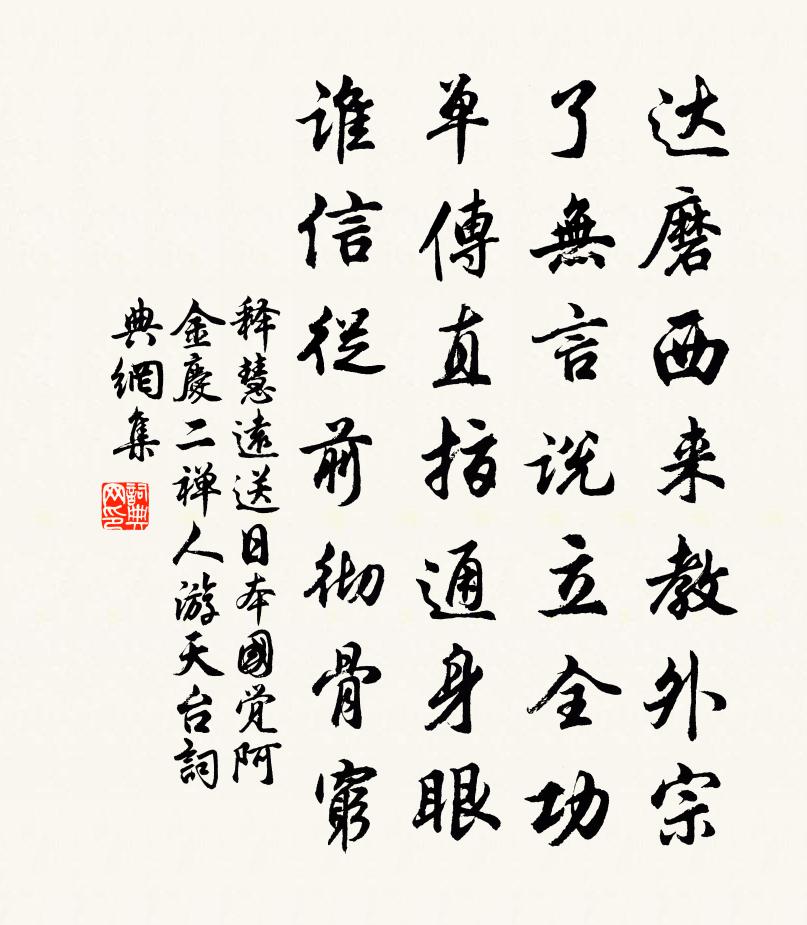 达磨西来教外宗
了無言说立全功
单傳直指通身眼
谁信従前彻骨窮
释慧遠送日本國觉阿
金慶二禅人游天台詞
典網集
詞典
网印